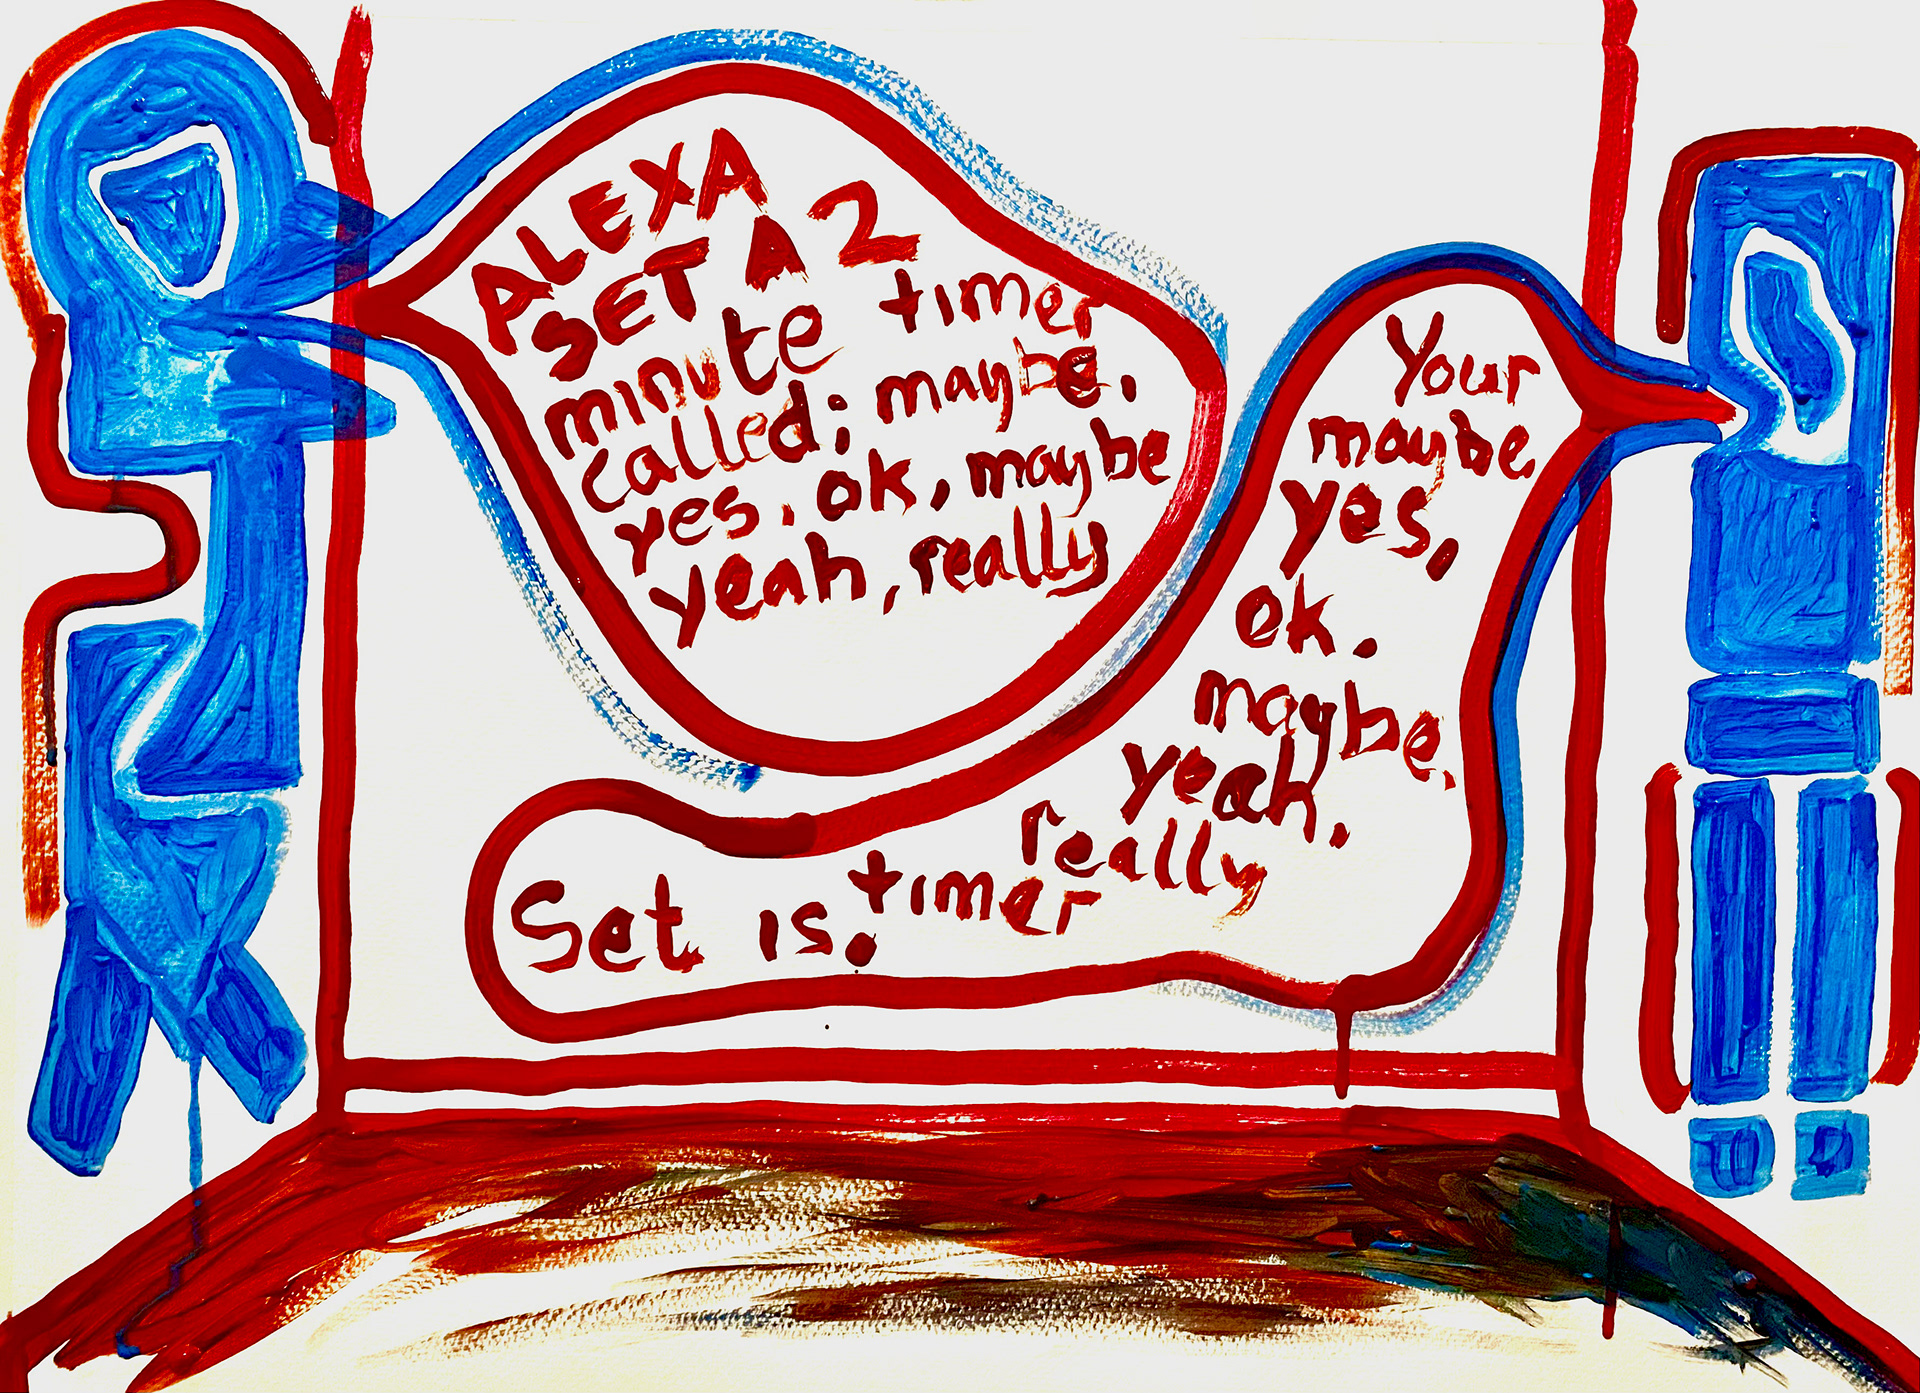 ALEXA
SET A 2
minute timer
called; maybe,
yes, ok, maybe
yeah, really
Your
maybe
yes,
ok.
maybe.
yeah,
really
timer
Set is.